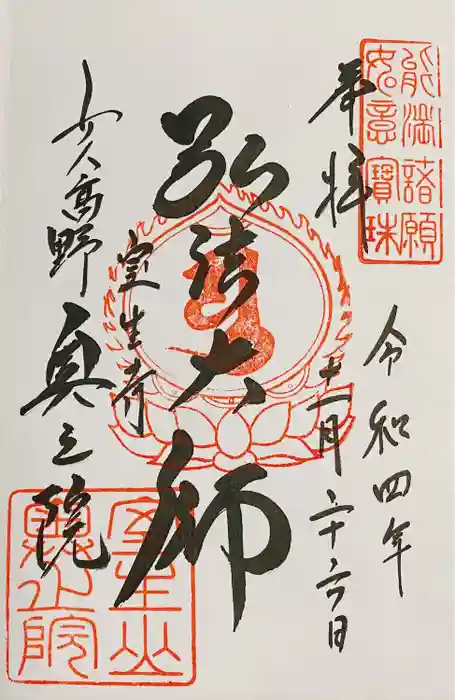 能満諸願
如意寶珠
奉拝
令和四年
十一月二十六日
弘法大師
室生寺
女人高野 奥之院
室生山
奥之院